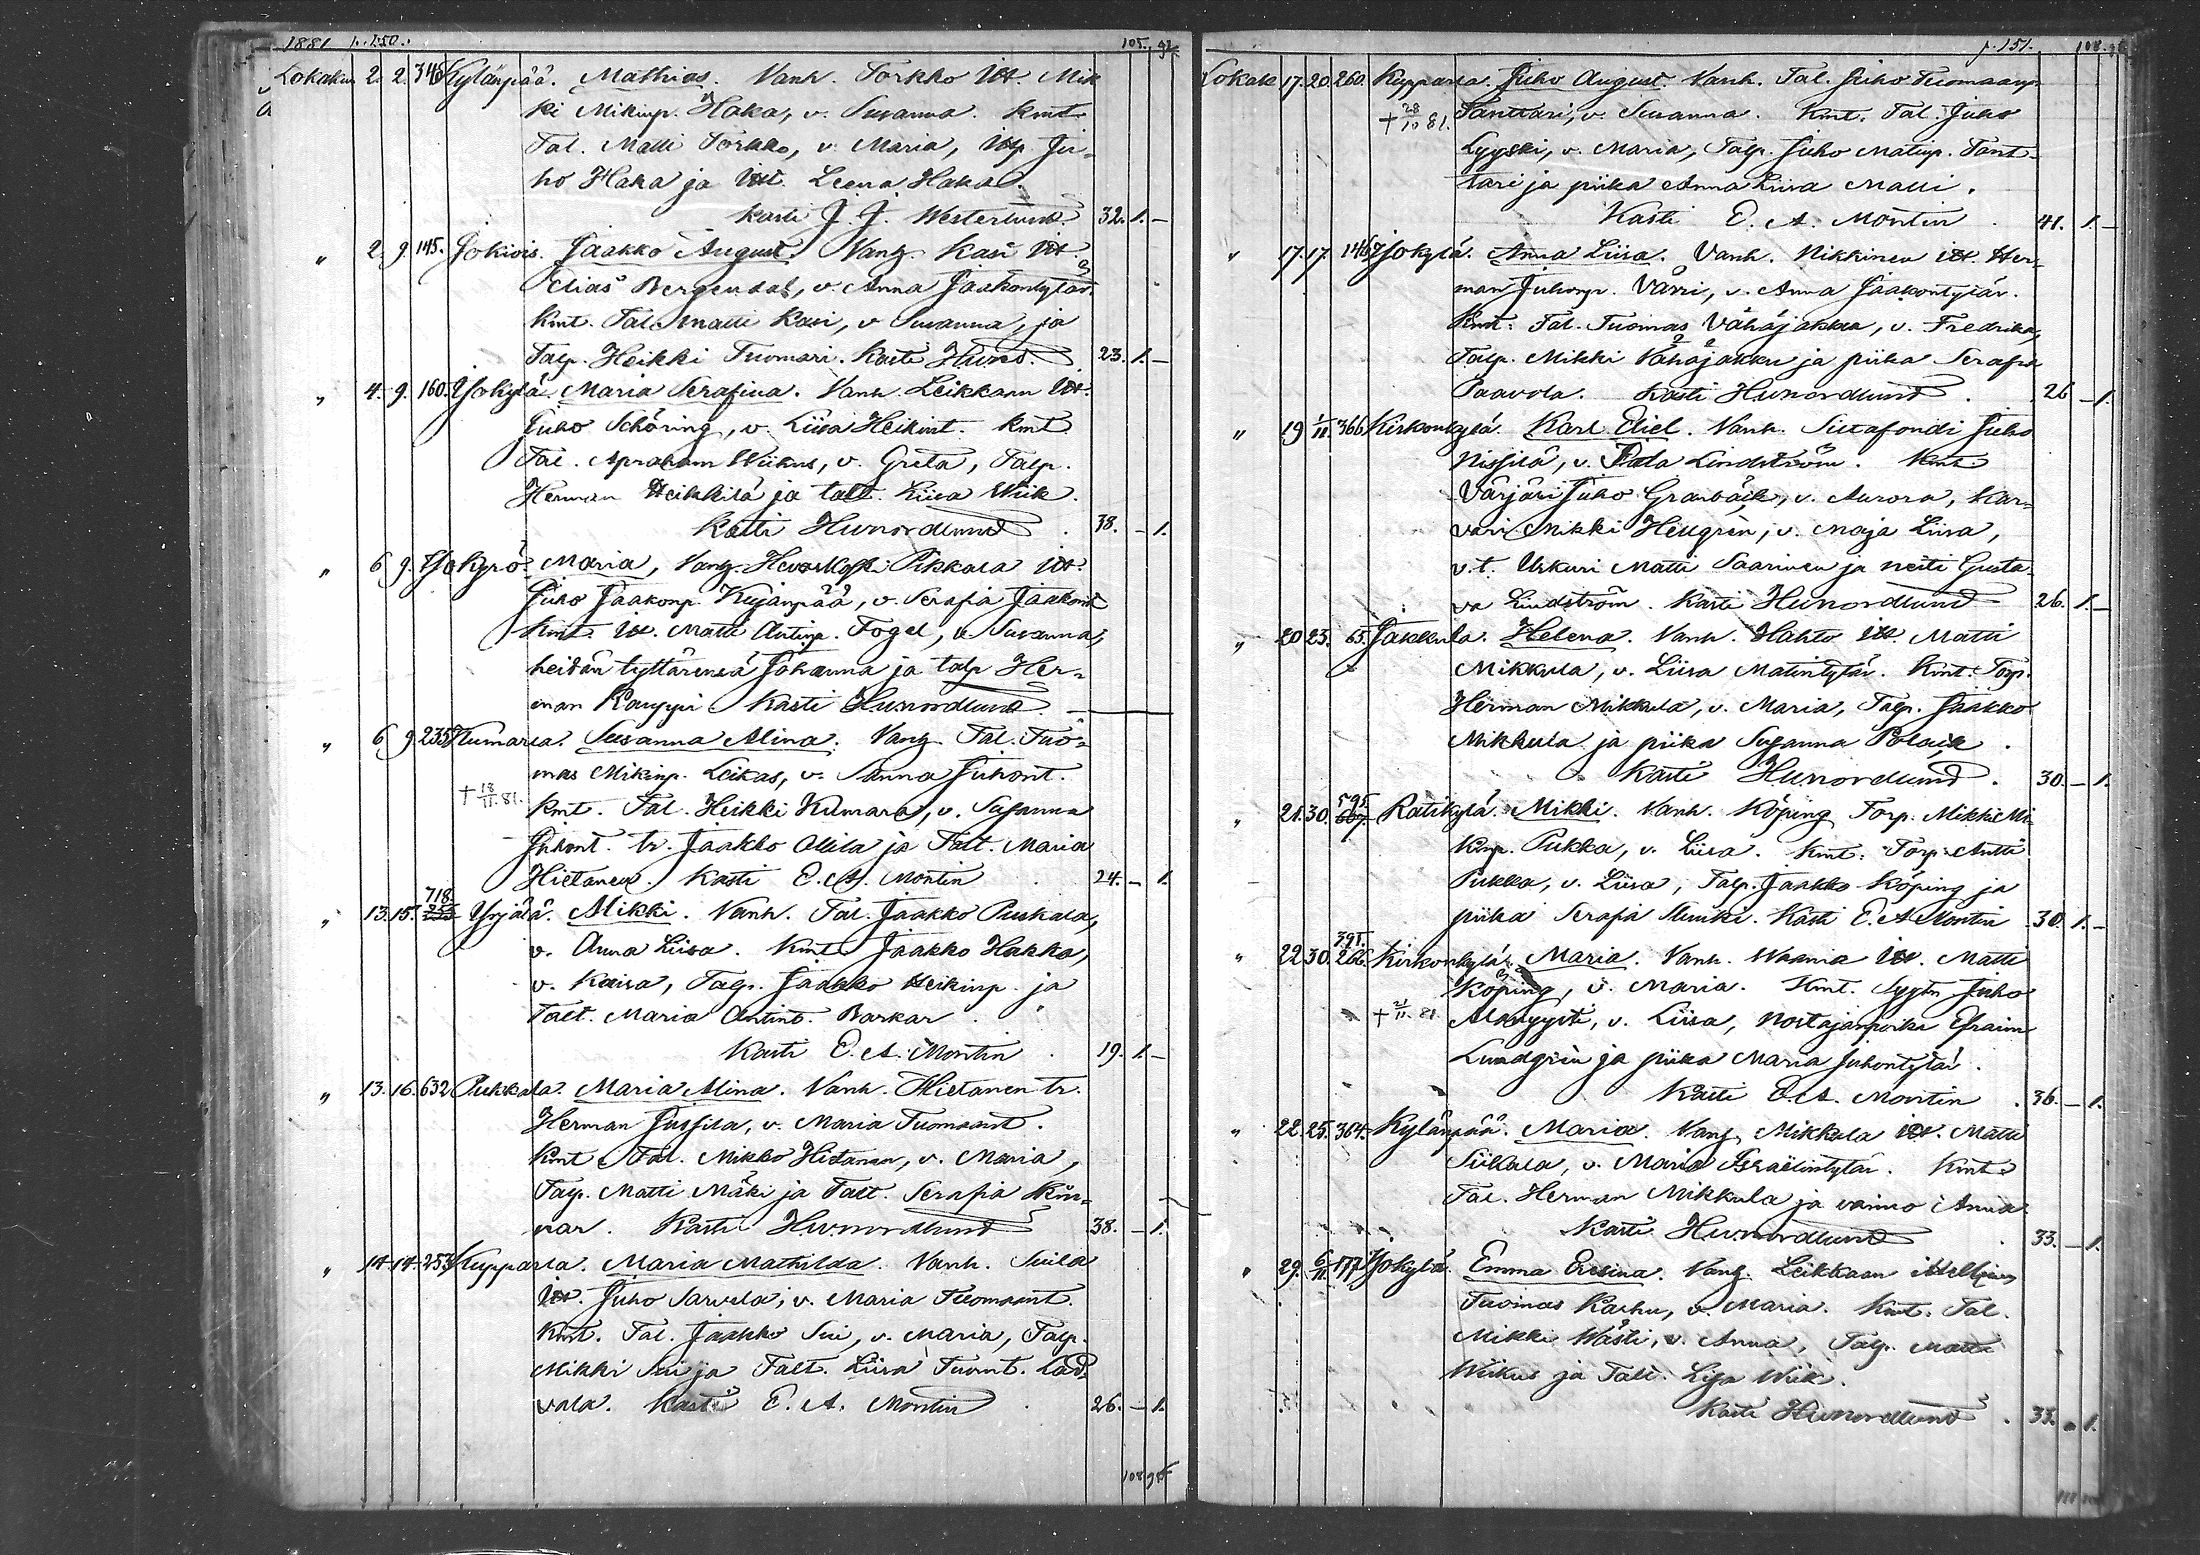 1881 p. 150. 105. 92
Lokakuu 2. 2. 346 Kylänpää. Mathias. Vanh. Torkko Itt. Mik
ki Mikinp. Haka, v. Susanna. Kmt
Tal. Matti Torkko, v. Maria, Itp. Ju-
ho Haka ja Itt. Leena Haka.
Kasti J. J. Westerlund. 32. 1. –
„ 2. 9. 145. Jokiois. Jaakko August. Vanh. Kasi Itt.
Elias Bergendal, v. Anna Jaakontytär.
Kmt. Tal. Matti Kasi, v. Susanna, ja
Talp. Heikki Tuomari. Kasti Hunord. 23. 1. –
„ 4. 9. 160. Isokylä. Maria Serafina. Vanh. Leikkaan Itt.
Juho Schöring, v. Liisa Heikint. Kmt.
Tal. Apraham Wiikus, v. Greta, Talp.
Herman Heikkilä ja talt. Liisa Wiik.
Kasti Hunordlund. 38. – 1.
„ 6 9. Isokyrö. Maria, Vanh. Pikkala Itt.
Juho Jaakonp. Kujanpää, v. Serafia Jaakont
Kmt. Itt. Matti Antinp. Fogel, v. Susanna,
heidän tyttärensä Johanna ja talp Her-
man Kauppi Kasti Hunordlund. –
„ 6 9 235 Kumarla. Susanna Alina. Vanh. Tal. Tuo-
mas Mikinp. Leikas, v. Sanna Juhont.
† 18/11.81. Kmt. Tal. Heikki Kumara, v. Susanna
Juhont. tr. Jaakko Ollila ja Talt. Maria
Hietanen. Kasti E. A. Montin 24. – 1.
718
„ 13. 15. Yrjälä. Mikki. Vanh. Tal. Jaakko Puskala,
v. Anna Liisa. Kmt Jaakko Hakka,
v. Kaisa, Talp. Jaakko Heikinp. ja
Talt. Maria Antint. Barkar.
Kasti E. A. Montin. 19. 1. –
„ 13. 16. 632 Puhkala. Maria Alina. Vanh. Hietanen tr.
Herman Jussila, v. Maria Tuomaant.
Kmt Tal. Mikko Hietanen, v. Maria,
Talp. Matti Mäki ja Talt. Serafia Kin-
nar. Kasti Hunordlund 38. – 1.
„ 14. 14. 253 Kupparla. Maria Mathilda. Vanh. Suila
Itt. Juho Sarvela, v. Maria Tuomaant.
Kmt. Tal. Jaakko Sui, v. Maria, Talp.
Mikki Sui ja Talt. Liisa Tuomt. Lad
vala. Kasti E. A. Montin 26. – 1.
p. 151. 108.
Lokak 17. 20. 260. Kupparla. Juho August. Vanh. Tal. Juho Tuomaanp
† 28/10 81. Tanttari, v. Susanna. Kmt. Tal. Juho
Lyyski, v. Maria, Talp. Juho Matinp. Tant-
tari ja piika Anna Liisa Matti.
Kasti E. A. Montin. 41. 1. –
„ 17. 17. 146 Isokylä. Anna Liisa. Vanh. Nikkinen Itt. Her-
man Juhonp. Värri, v. Anna Jaakontytär.
Kmt. Tal. Tuomas Vähäjakku, v. Fredrika,
Talp. Mikki Vähäjakku ja piika Serafia
Paavola. Kasti Hunordlund. 26 – 1.
„ 19 1/11 366 Kirkonkylä. Karl Eliel. Vanh. Juho
Nissilä, v. Lindström. Kmt.
Värjäri Juho Granbäck, v. Aurora, Kar-
vari Mikki Hellgrén, v. Maja Liisa,
v.t. Urkuri Matti Saarinen ja neiti Gusta-
va Lindström. Kasti Hunordlund 26. 1. –
„ 20 23. 65. Jakkula. Helena. Vanh. Hahto Itt. Matti
Mikkula, v. Liisa Matintytär. Kmt. Torp.
Herman Mikkula, v. Maria, Talp. Jaakko
Mikkula ja piika Susanna Polack.
Kasti Hunordlund. 30. – 1.
„ 21. 30. Ratikylä. Mikki. Vanh. Köping Torp. Mikki Mi-
kinp. Pukka, v. Liisa. Kmt. Torp. Antti
Pukka, v. Liisa, Talp. Jaakko Köping ja
piika Serafia. Kasti E. A. Montin 30. 1. –
391.
„ 22 30. 266. Kirkonkylä. Maria. Vanh. Waania Itt. Matti
Köping, v. Maria. Kmt. Juho
† 21/11. 81 v. Liisa, Nostajanpoika Efraim
Lundgrén ja piika Maria Juhontytär.
Kasti E. A. Montin. 36. – 1.
„ 22. 25. 364. Kylänpää. Maria. Vanh. Mikkula Itt. Matti
Siltala, v. Maria Israelintytär. Kmt.
Tal. Herman Mikkula ja vaimo Anna.
Kasti Hunordlund 33. – 1.
„ 29. 6/11. 177 Isokylä. Emma Eresina. Vanh. Leikkaan
Tuomas Karhu, v. Maria. Kmt. Tal.
Mikki Wästi, v. Anna, Talp. Matti
Wiikus ja Talt. Lisa Wiik.
Kasti Hunordlund. 33. – 1.